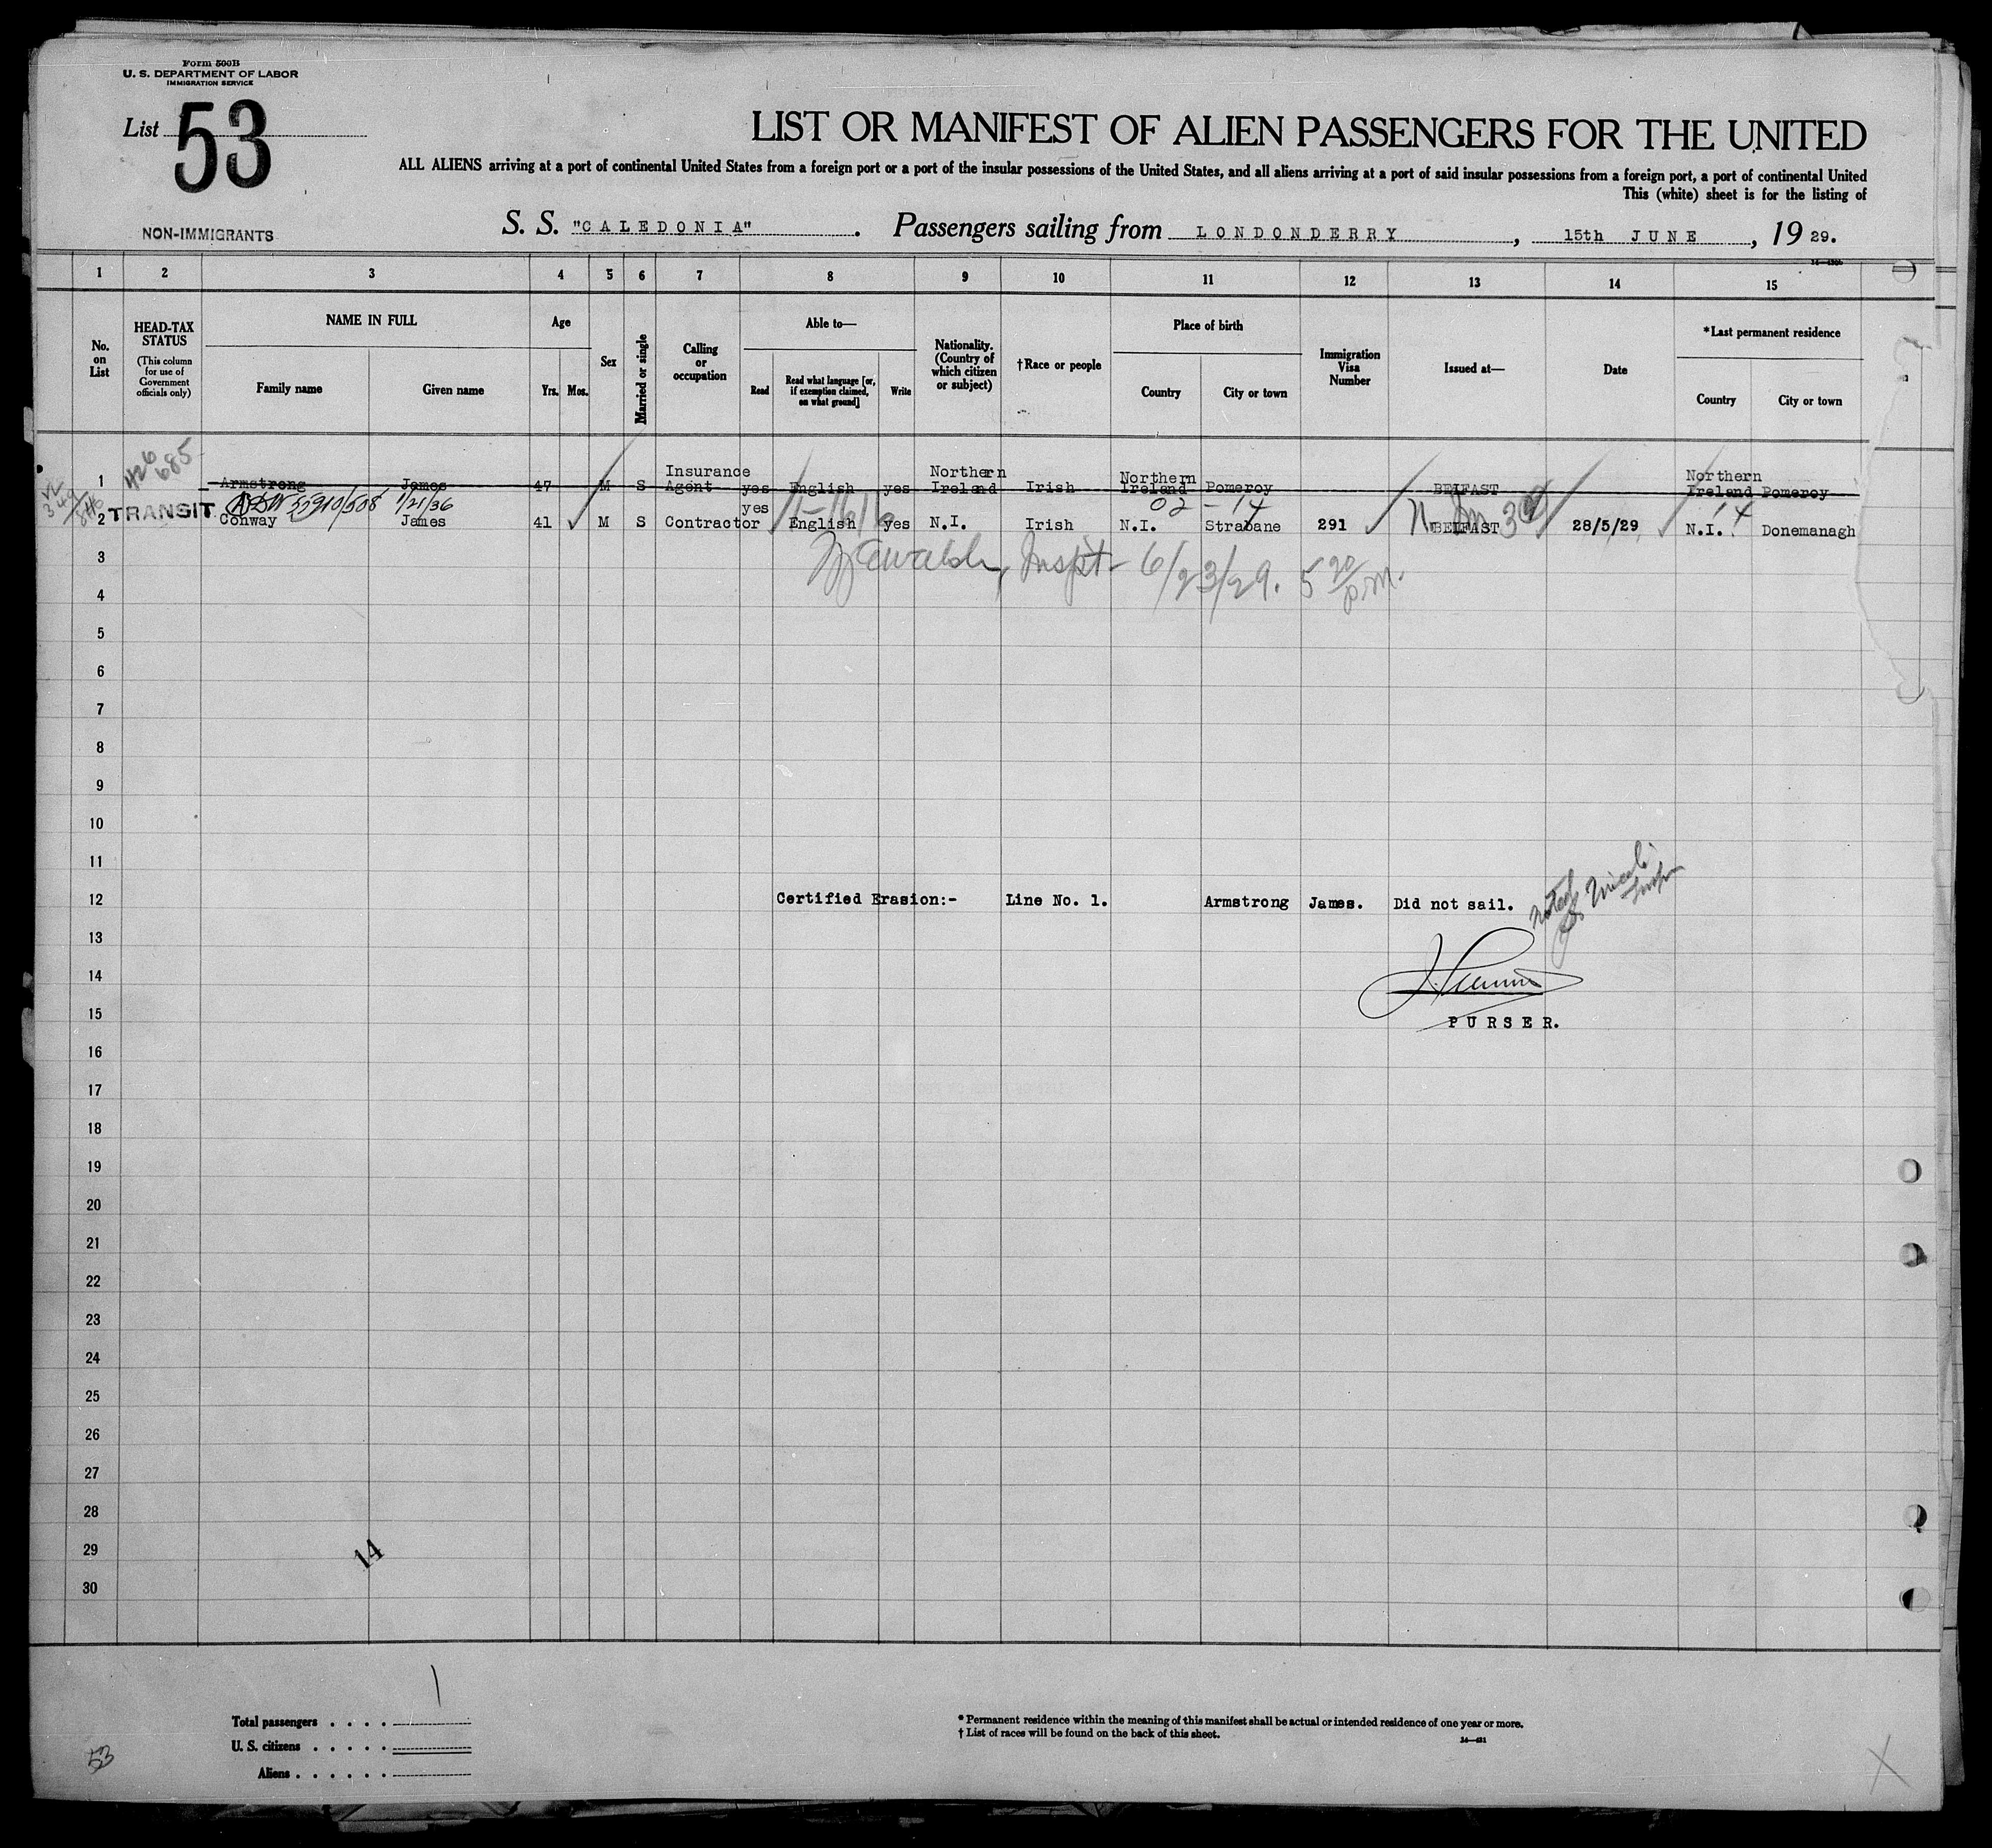 Form 500B
U. S. DEPARTMENT OF LABOR
IMMIGRATION SERVICE
List 53
LIST OR MANIFEST OF ALIEN PASSENGERS FOR THE UNITED
ALL ALIENS arriving at a port of continental United States from a foreign port or a port of the insular possessions of the United States, and all aliens arriving at a port of said insular possessions from a foreign port, a port of continental United
This (white) sheet is for the listing of
NON-IMMIGRANTS
S. S. "CALEDONIA" . Passengers sailing from LONDONDERRY , 15th JUNE , 1929.
1 2 3 4 5 6 7 8 9 10 11 12 13 14 15
No. on List
HEAD-TAX STATUS
(This column for use of Government officials only)
NAME IN FULL
Family name
Given name
Age
Yrs. Mos.
Sex
Married or single
Calling or occupation
Able to—
Read
Read what language [or, if exemption claimed, on what ground]
Write
Nationality. (Country of which citizen or subject)
†Race or people
Place of birth
Country
City or town
Immigration Visa Number
Issued at—
Date
*Last permanent residence
Country
City or town
426 685
1 Armstrong James 47 M S Insurance Agent yes English yes Northern Ireland Irish Northern Ireland Pomeroy BELFAST Northern Ireland Pomeroy
1/21/36
02 - 14
14
TRANSIT
2 Conway James 41 M S Contractor yes English yes N.I. Irish N.I. Strabane 291 BELFAST 28/5/29 N.I. Donemanagh
Inspt - 6/23/29. 5 20 p.m.
3
4
5
6
7
8
9
10
11
12 Certified Erasion:- Line No. 1. Armstrong James. Did not sail.
Noted
13
14
15
PURSER.
16
17
18
19
20
21
22
23
24
25
26
27
28
29
14
30
1
Total passengers
U. S. citizens
Aliens
* Permanent residence within the meaning of this manifest shall be actual or intended residence of one year or more.
† List of races will be found on the back of this sheet.
53
X